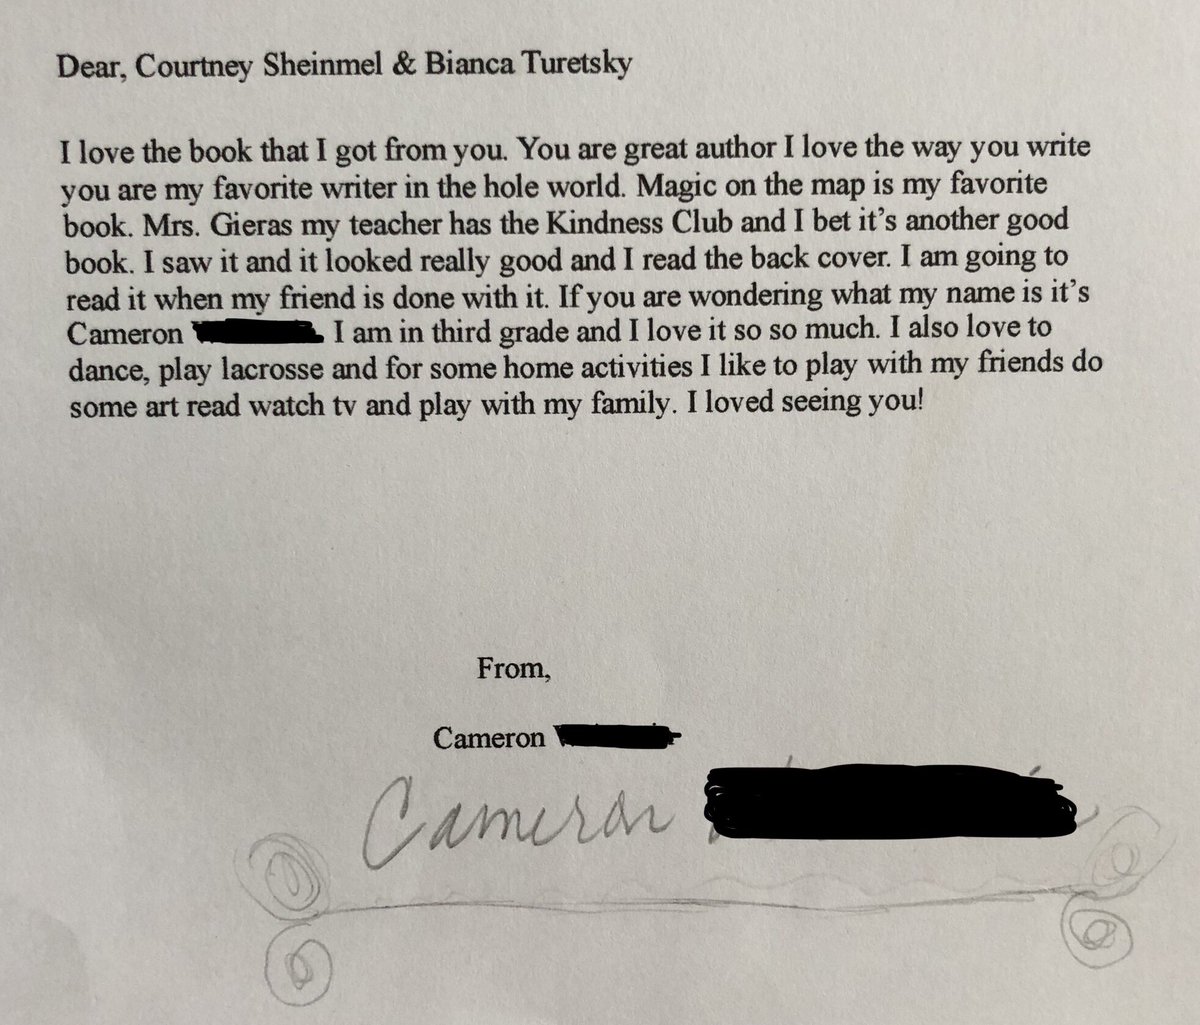 Dear, Courtney Sheinmel & Bianca Turetsky
I love the book that I got from you. You are great author I love the way you write
you are my favorite writer in the hole world. Magic on the map is my favorite
book. Mrs. Gieras my teacher has the Kindness Club and I bet it's another good
book. I saw it and it looked really good and I read the back cover. I am going to
read it when my friend is done with it. If you are wondering what my name is it's
Cameron I am in third grade and I love it so so much. I also love to
dance, play lacrosse and for some home activities I like to play with my friends do
some art read watch tv and play with my family. I loved seeing you!
From,
Cameron
Cameron